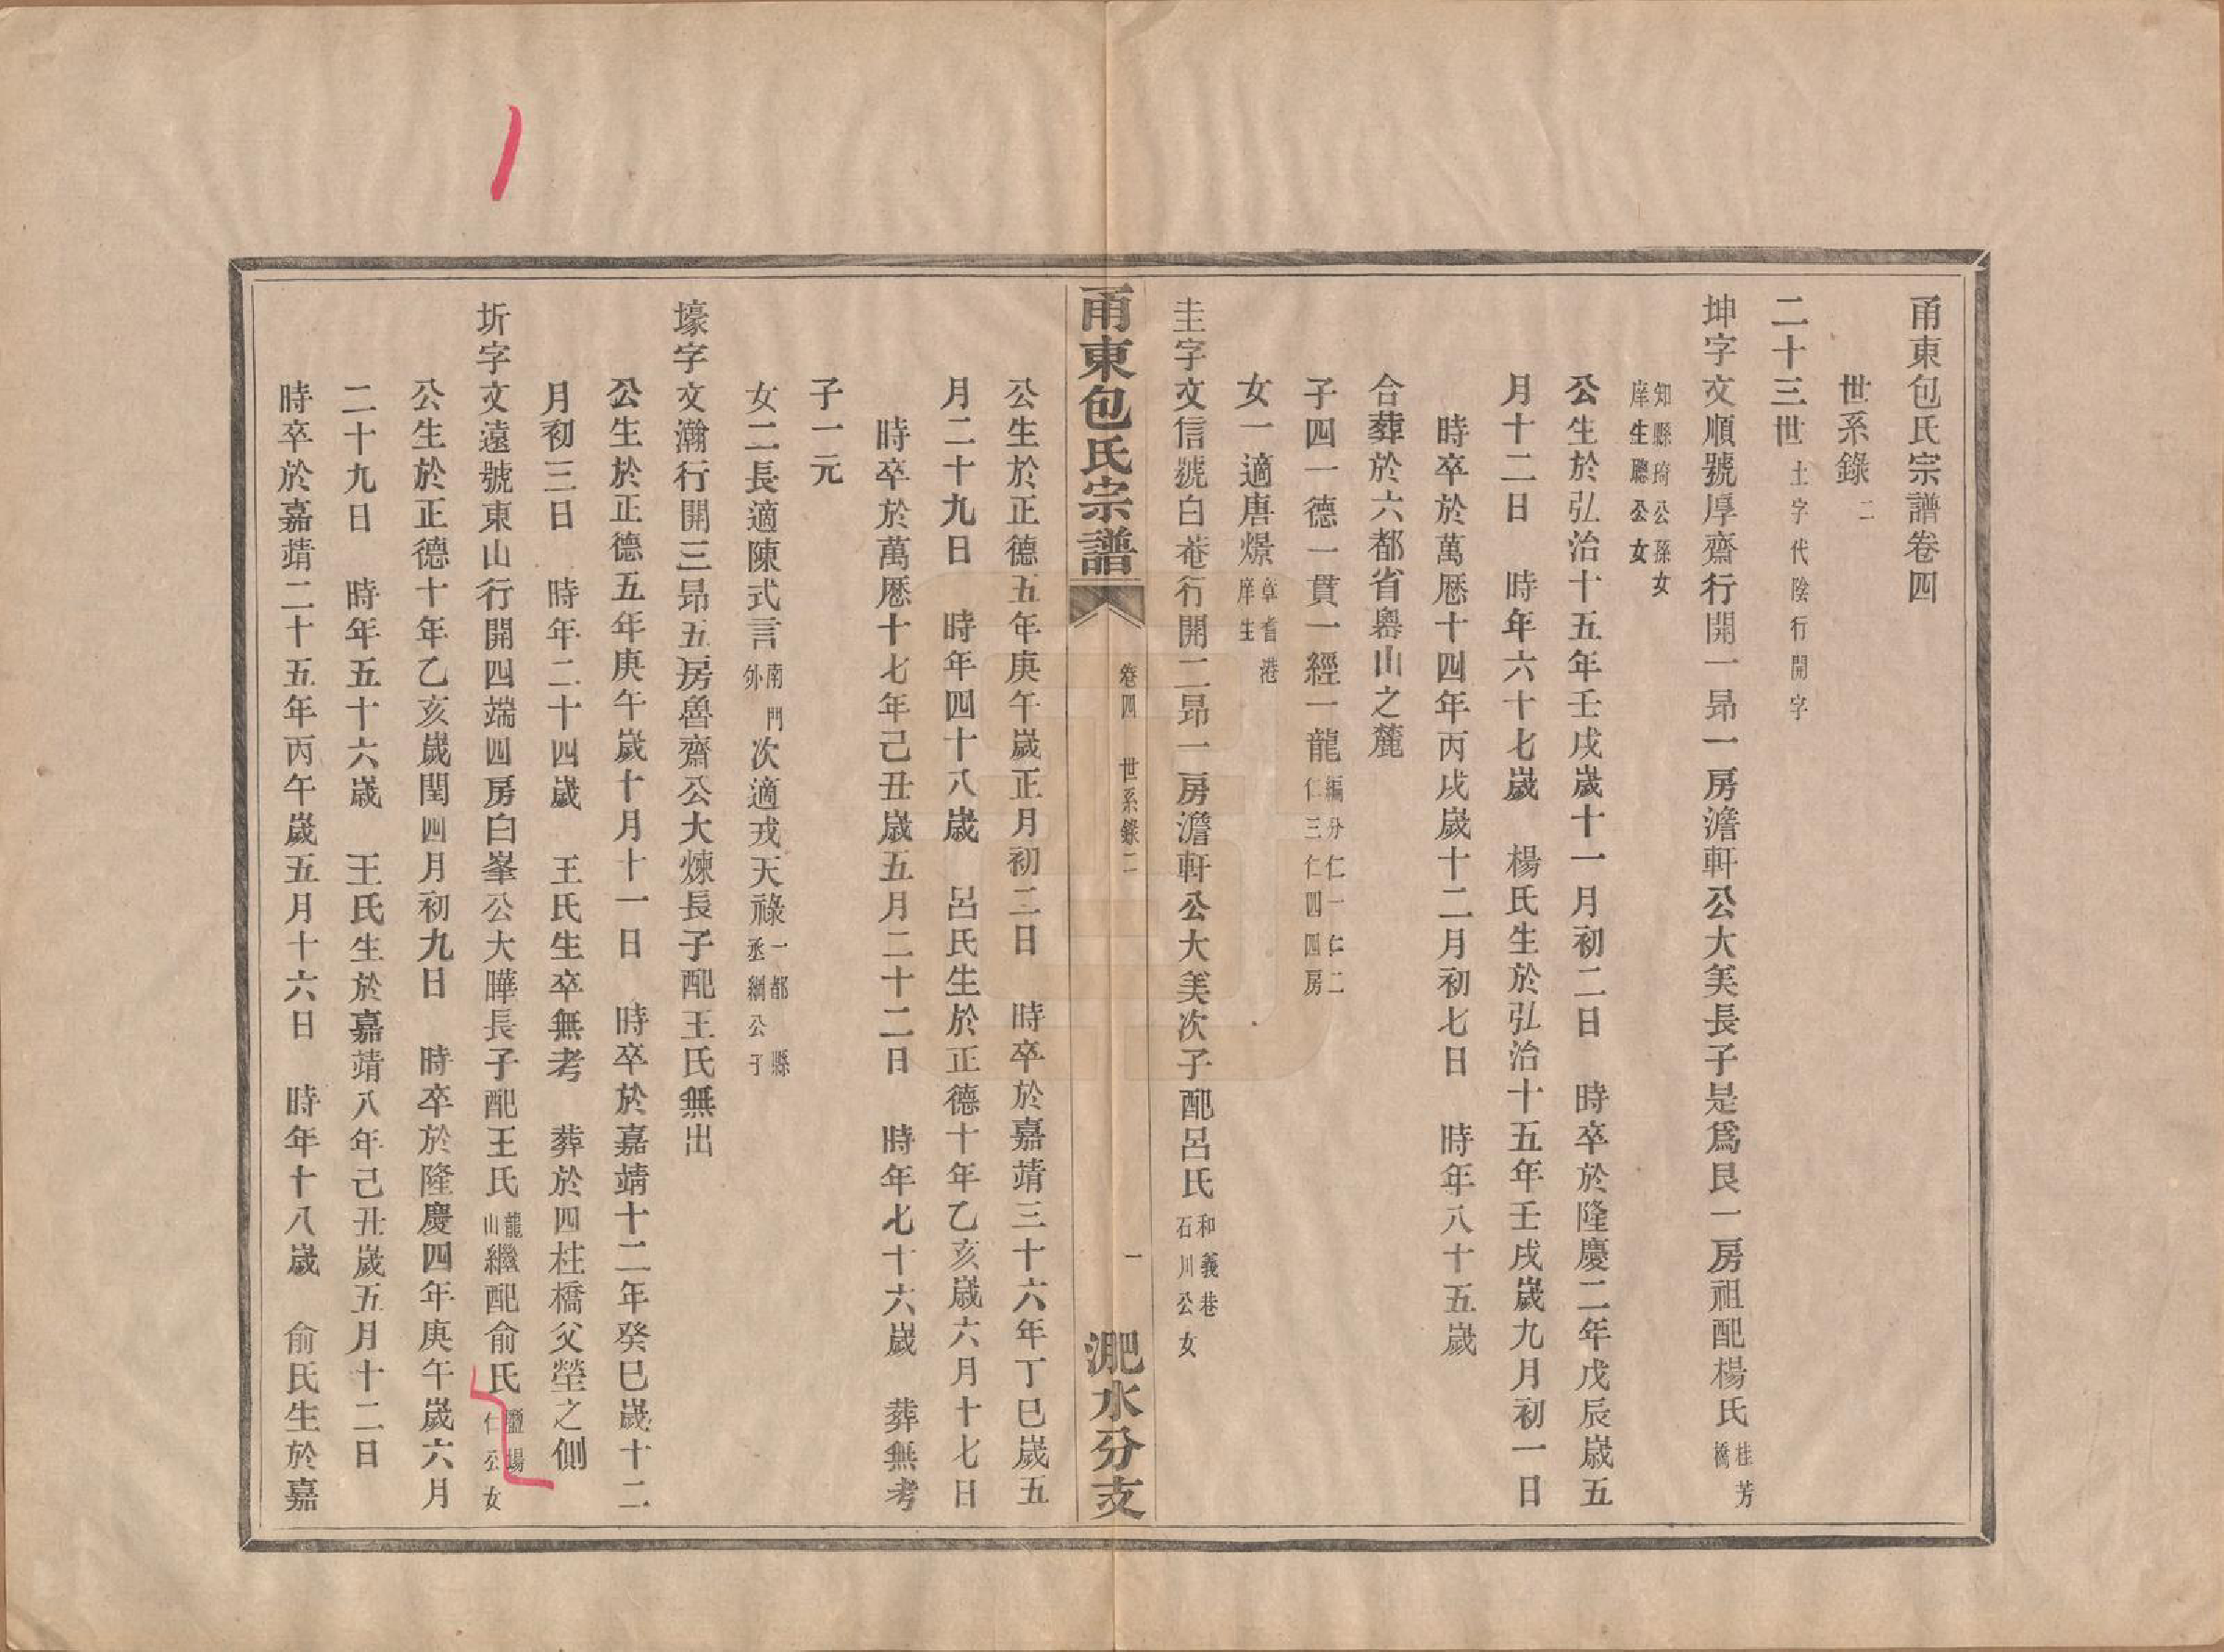 甬東包氏宗譜卷四
世系錄二
二十三世土字代陰行開字
坤字文順號厚齋行開一昂一房澹軒公大美長子是爲艮一房祖配楊氏桂芳橋
知縣琦公孫女庠生聰公女
公生於弘治十五年壬戌歲十一月初二日　時卒於隆慶二年戊辰歲五
月十二日　時年六十七歲　楊氏生於弘治十五年壬戌歲九月初一日
時卒於萬厯十四年丙戌歲十二月初七日　時年八十五歲
合葬於六都省嶴山之麓
子四一德一貫一經一龍編分仁一仁二仁三仁四四房
女一適唐燝章耆港庠生
圭字文信號白菴行開二昂一房澹軒公大美次子配呂氏和義巷石川公女
甬東包氏宗譜　卷四　世系錄二　一　淝水分支
公生於正德五年庚午歲正月初二日　時卒於嘉靖三十六年丁巳歲五
月二十九日　時年四十八歲　呂氏生於正德十年乙亥歲六月十七日
時卒於萬厯十七年己丑歲五月二十二日　時年七十六歲　葬無考
子一元
女二長適陳式言南門外次適戎天祿一都縣丞綱公子
壕字文瀚行開三昂五房魯齋公大煉長子配王氏無出
公生於正德五年庚午歲十月十一日　時卒於嘉靖十二年癸巳歲十二
月初三日　時年二十四歲　王氏生卒無考　葬於四柱橋父塋之側
圻字文遠號東山行開四端四房白峯公大曄長子配王氏龍山繼配俞氏鹽場仁公女
公生於正德十年乙亥歲閏四月初九日　時卒於隆慶四年庚午歲六月
二十九日　時年五十六歲　王氏生於嘉靖八年己丑歲五月十二日
時卒於嘉靖二十五年丙午歲五月十六日　時年十八歲　俞氏生於嘉